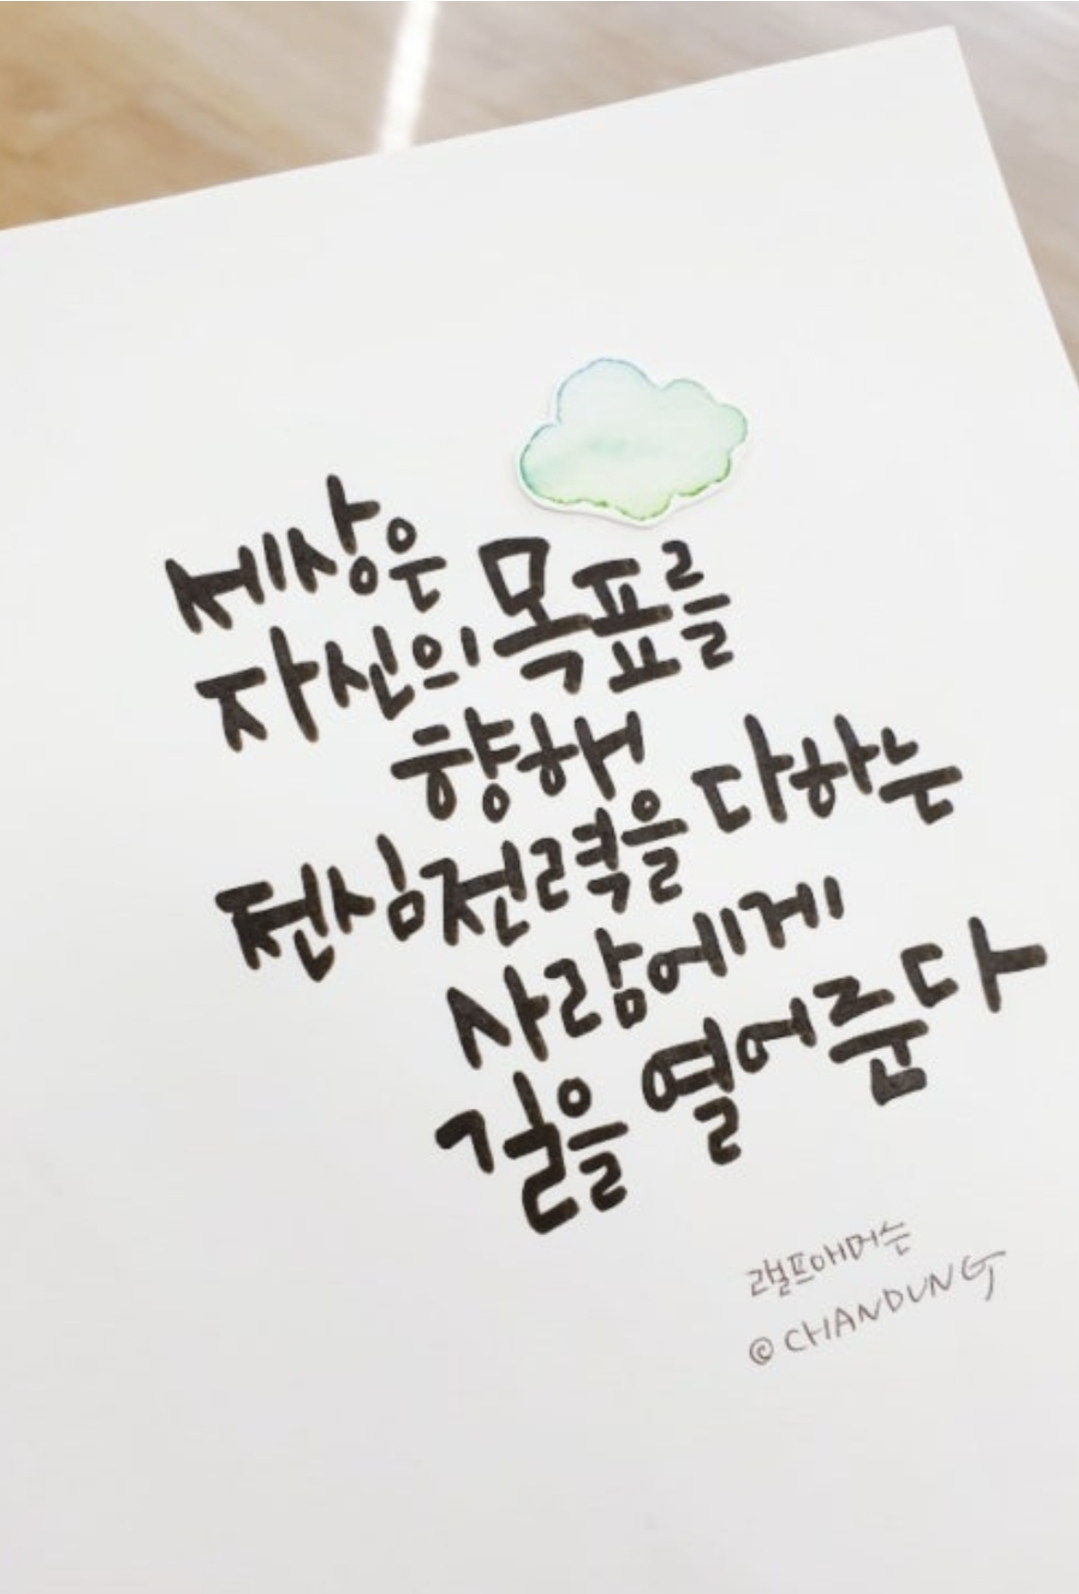 세상은
자신의 목표를
향해
전심전력을 다하는
사람에게
길을 열어준다
랠프애머슨
@CHANDUNG